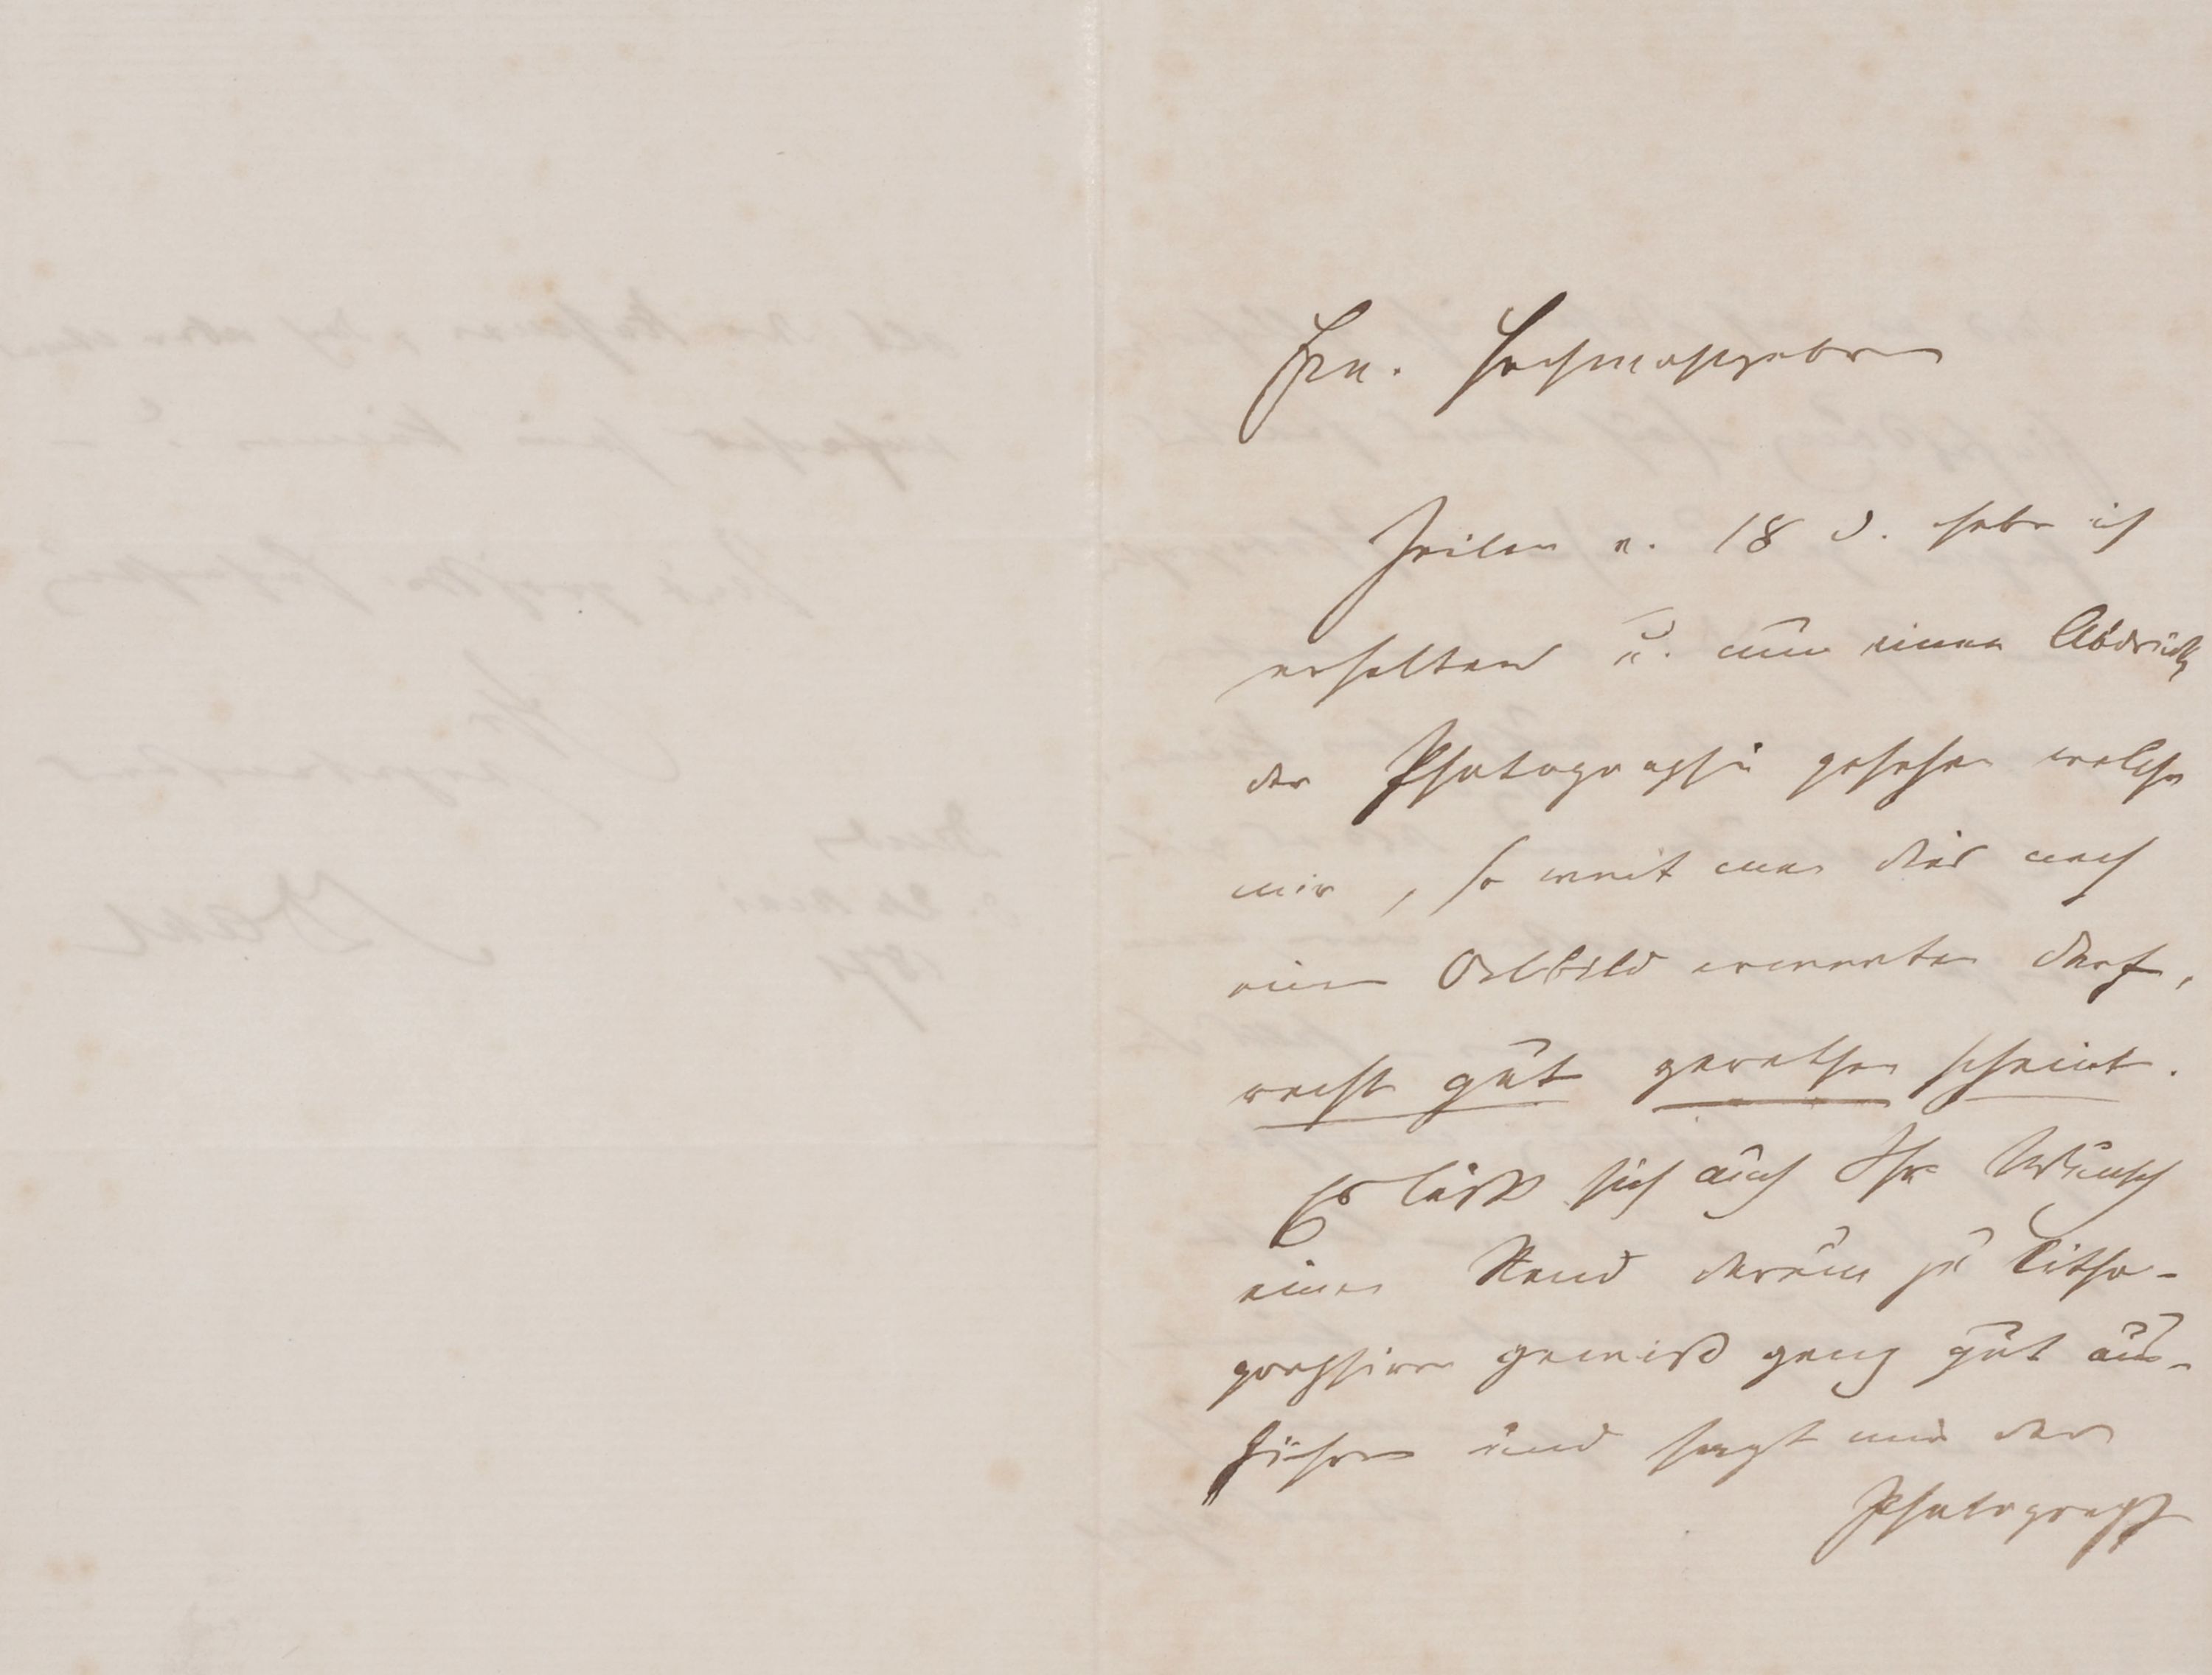 Ew. Hochwohlgeboren
Zeilen v. 18 d. habe ich
erhalten u. nun einen Abdruck
der Photographie gesehen welche
mir, so weit man dies nach
einem Oelbild erwarten darf,
recht gut gerathen scheint.
Es läßt sich auch Ihr Wunsch
einen Rand darum zu litho-
graphiren gewiß ganz gut aus-
führen und sagt mir der
Photograph